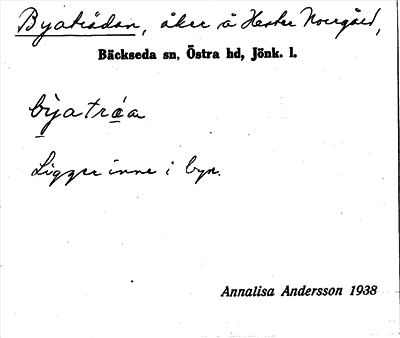 Byaträdan, åker å Hester Norrgård,
Bäckseda sn, Östra hd, Jönk. l.
by̱atrá̱a
Ligger inne i byn.
Annalisa Andersson 1938